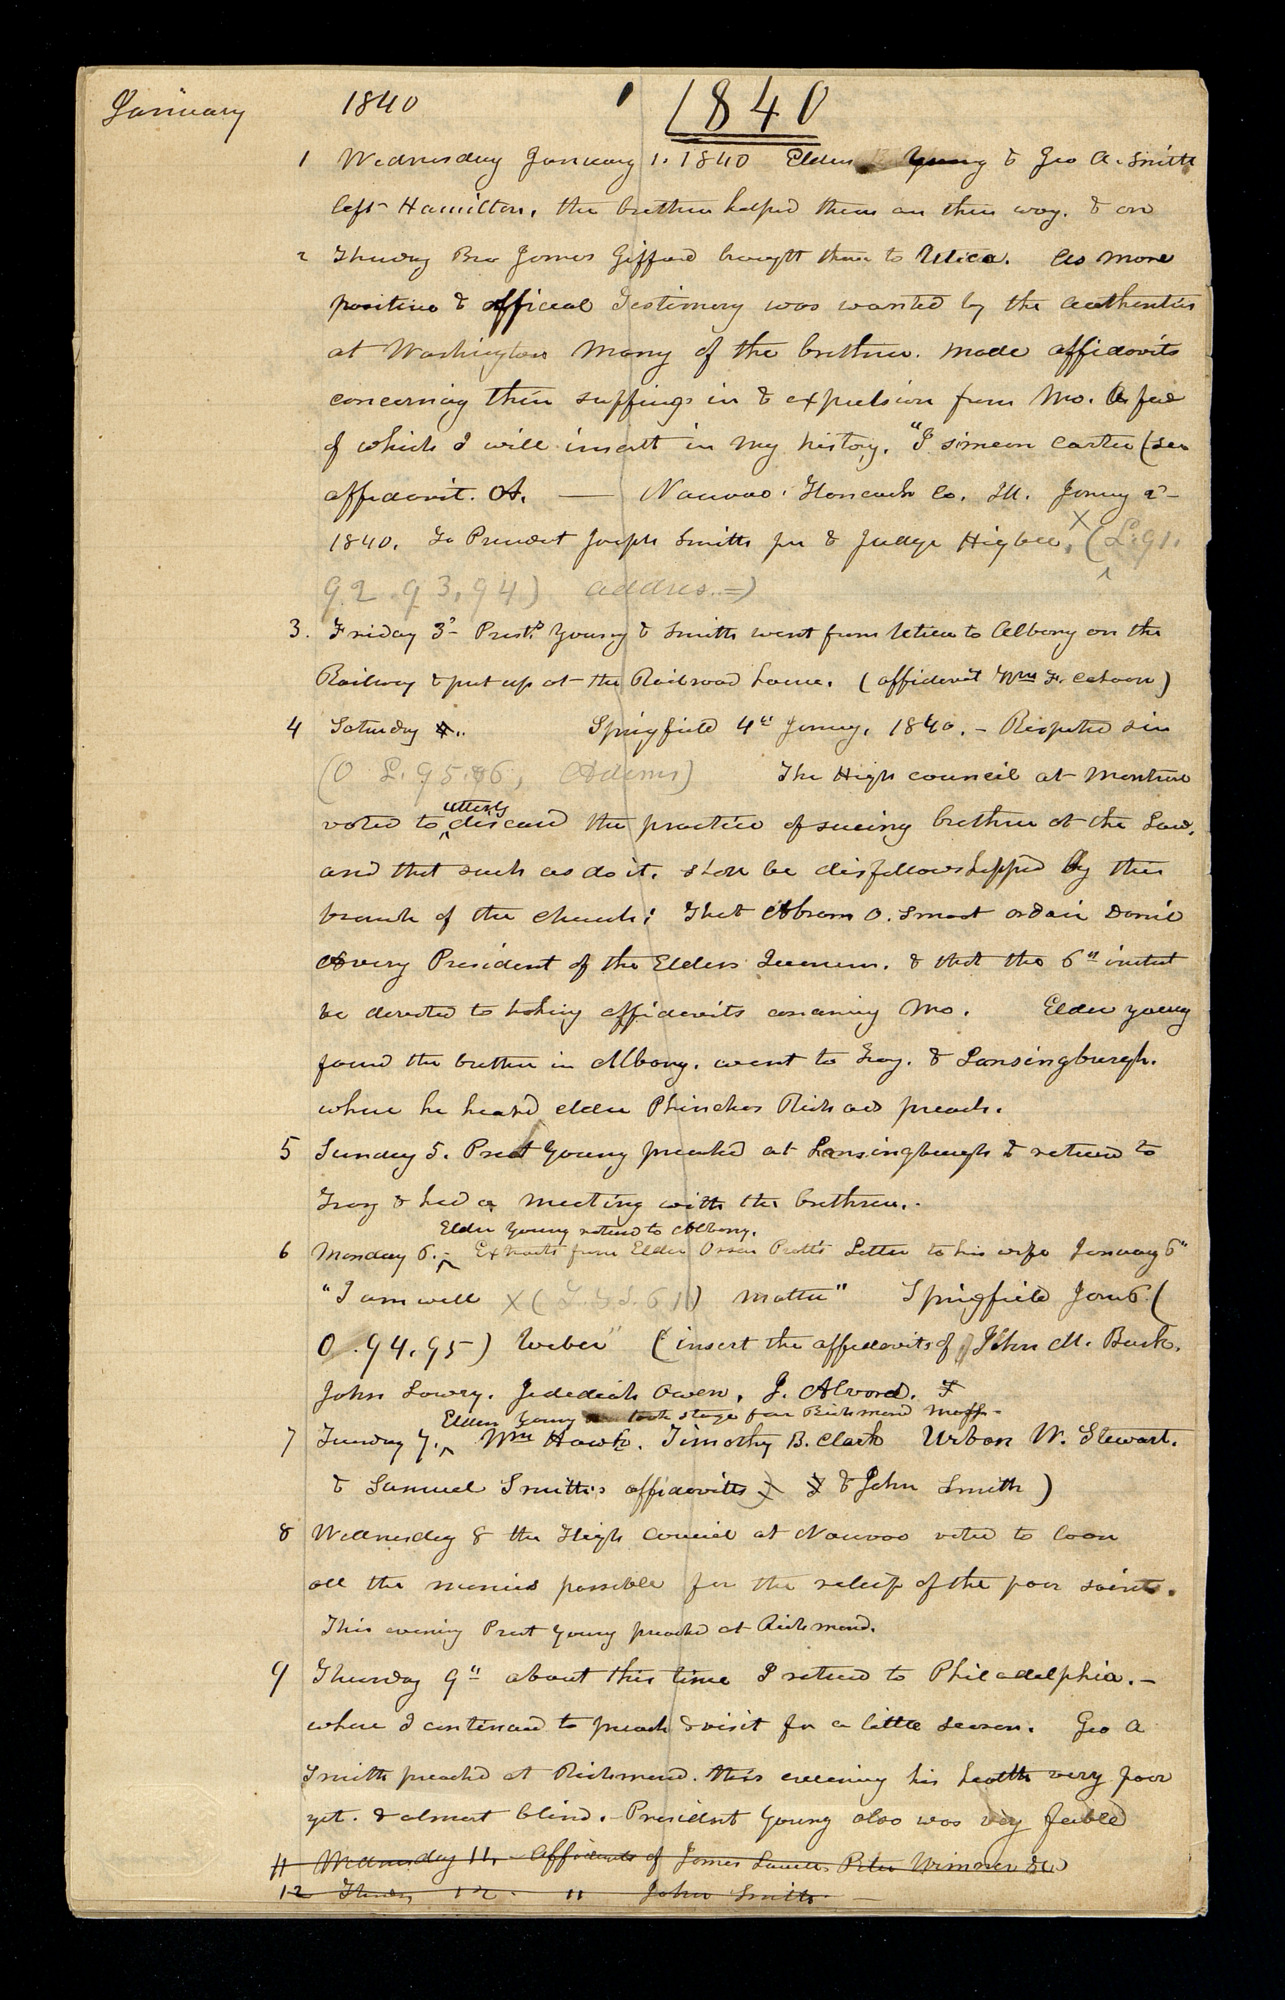 January 1840 1840
1 Wednesday January 1. 1840 Elder Young & Geo A. Smith
left Hamilton, the brethren helped them on their way. & on
2 Thursday Bro James Gifford brought them to Utica. As more
positive & official Testimony was wanted by the authorities
at Washington Many of the brethren. made affidavits
concerning their suffings in & expulsion from Mo. A few
of which I will insert in my history. "I simeon Carter (see
affidavit. A. — Nauvoo. Hancock Co. Ill. Janry 2d
1840. To President Joseph Smith jnr & Judge Higbee, X (L. 91.
92. 93, 94) address. =)
3. Friday 3d– Prest.s Young & Smith went from Utica to Albany on the
Railway & put up at the Railroad house. (affidavit Wm F. Cahoon)
4 Saturday 4.. Springfield 4th Janry. 1840. – Respected sir
(O L. 95.96, Adams) The High council at Montrose
voted to utterly discard the practice of sueing brethren at the Law,
and that such as do it. shall be disfellowshipped by this
branch of the church; That Abram O. Smoot ordain Daniel
Avery President of the Elders Quorum. & that the 6th instant
be devoted to taking affidavits concerning Mo. Elder young
found the brethren in Albany. went to Troy. & Lansingburgh.
where he heard elder Phinehas Richards preach.
5 Sunday 5. Prest Young preached at Lansingburgh & returned to
Troy & had a meeting with the brethren..
Elder Young returned to Albany.
6 Monday 6.– Extracts from Elder Orson Pratt's Letter to his wife January 6th
"I am well X ( T. & S. 61) matter" Springfield Jan 6. (
O. 94, 95) Weber" (insert the affidavits of John M. Burk.
John Lowry. Jedediah Owen, J. Alvord. F
Elder Young took stage for Richmond Mass–
7 Tuesday 7. Wm Hawk. Timothy B. Clark Urban W. Stewart.
& Samuel Smith's affidavits) & John Smith)
8 Wednesday 8 the High Council at Nauvoo voted to loan
all the monies possible for the relief of the poor saints.
This evening Prest Young preached at Richmond.
9 Thursday 9th about this time I returned to Philadelphia.–
where I continued to preach & visit for a little season. Geo A
Smith preached at Richmond. this evening his health very poor
yet. & almost blind.– President Young also was very feeble
11 Wednesday 11. – Affidavits of James Peter Wimmer &c
12 Thursday 12. " John Smith. —